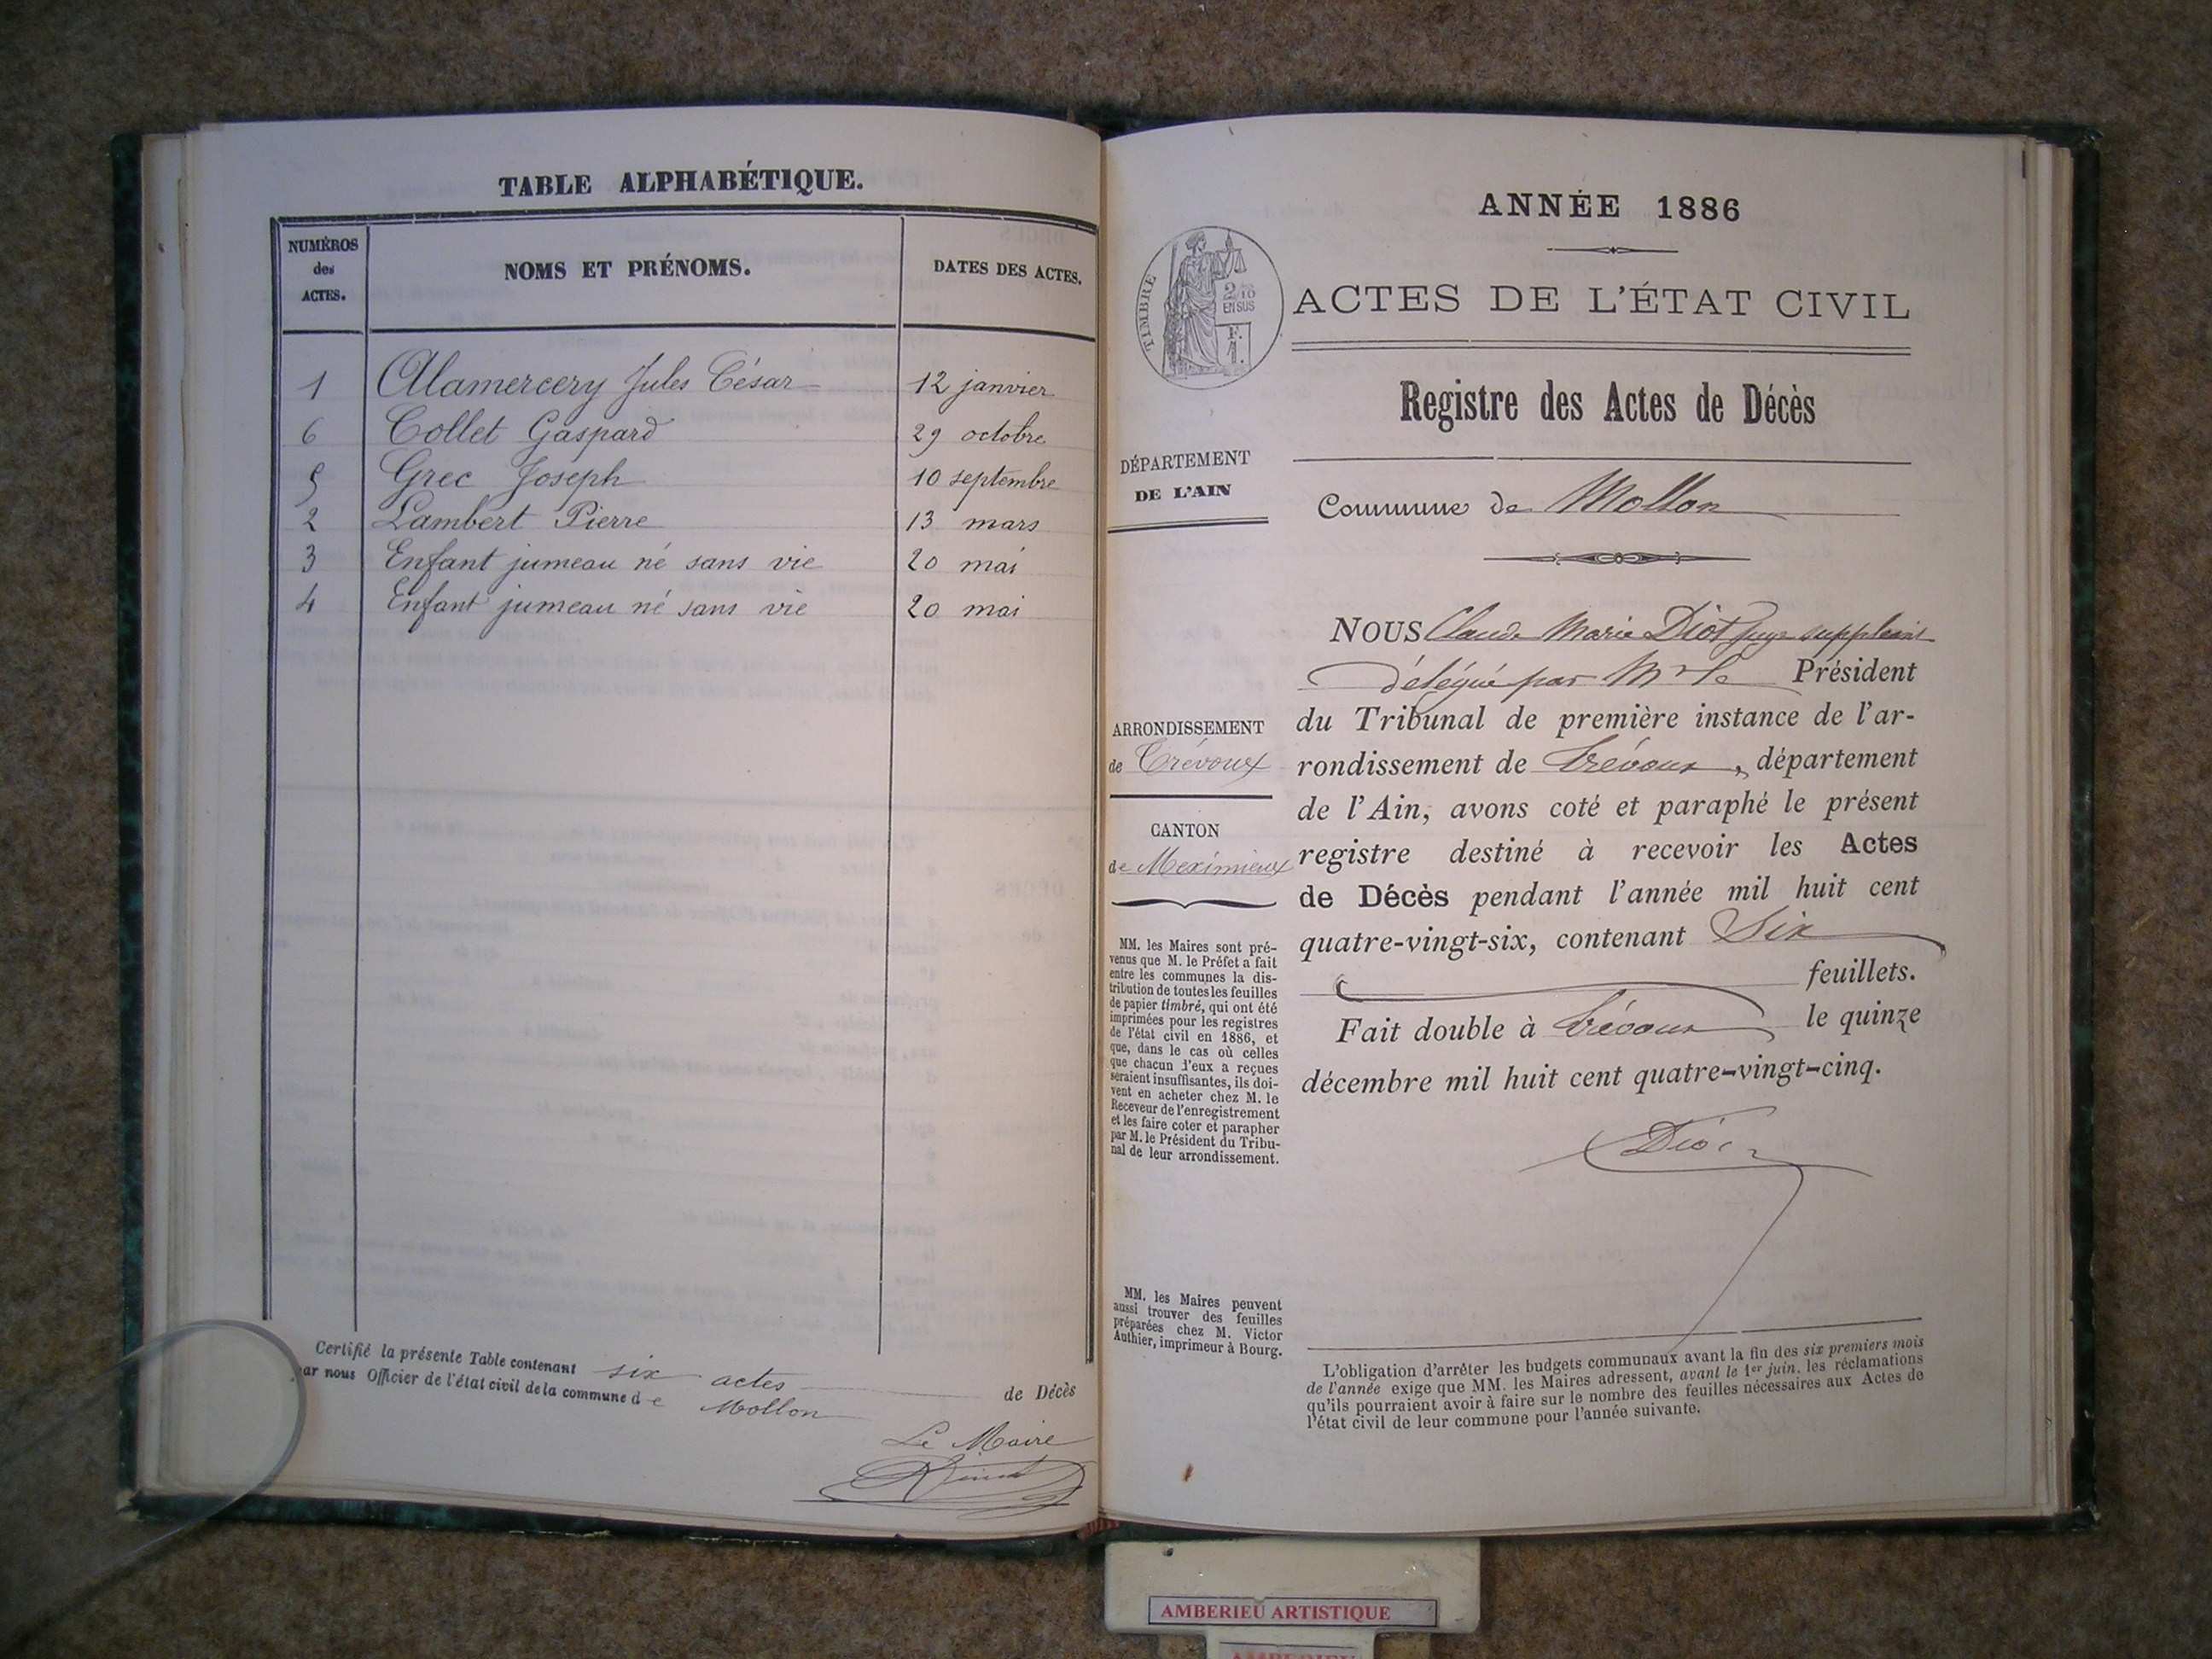 TABLE ALPHABÉTIQUE.
NUMÉROS
des
ACTES.
NOMS ET PRÉNOMS.
DATES DES ACTES.
1 Alamercery Jules César 12 janvier
6 Collet Gaspard 29 octobre
5 Grec Joseph 10 septembre
2 Lambert Pierre 13 mars
3 Enfant jumeau né sans vie 20 mai
4 Enfant jumeau né sans vie 20 mai
Certifié la présente Table contenant six actes de Décès
par nous Officier de l'état civil de la commune de Mollon
Le Maire
ANNÉE 1886
TIMBRE
2/10
EN SUS
F.
1.
ACTES DE L'ÉTAT CIVIL
Registre des Actes de Décès
DÉPARTEMENT
DE L'AIN
Commune de Mollon
ARRONDISSEMENT
de Trévoux
CANTON
de Meximieux
MM. les Maires sont pré-
venus que M. le Préfet a fait
entre les communes la dis-
tribution de toutes les feuilles
de papier timbré, qui ont été
imprimées pour les registres
de l'état civil en 1886, et
que, dans le cas où celles
que chacun d'eux a reçues
seraient insuffisantes, ils doi-
vent en acheter chez M. le
Receveur de l'enregistrement
et les faire coter et parapher
par M. le Président du Tribu-
nal de leur arrondissement.
MM. les Maires peuvent
aussi trouver des feuilles
préparées chez M. Victor
Authier, imprimeur à Bourg.
NOUS Claude Marie Diot juge suppléant
délégué par Mr le Président
du Tribunal de première instance de l'ar-
rondissement de Trévoux, département
de l'Ain, avons coté et paraphé le présent
registre destiné à recevoir les Actes
de Décès pendant l'année mil huit cent
quatre-vingt-six, contenant Six
feuillets.
Fait double à Trévoux le quinze
décembre mil huit cent quatre-vingt-cinq.
Diot
L'obligation d'arrêter les budgets communaux avant la fin des six premiers mois
de l'année exige que MM. les Maires adressent, avant le 1er juin, les réclamations
qu'ils pourraient avoir à faire sur le nombre des feuilles nécessaires aux Actes de
l'état civil de leur commune pour l'année suivante.
AMBERIEU ARTISTIQUE
AMBERIEU